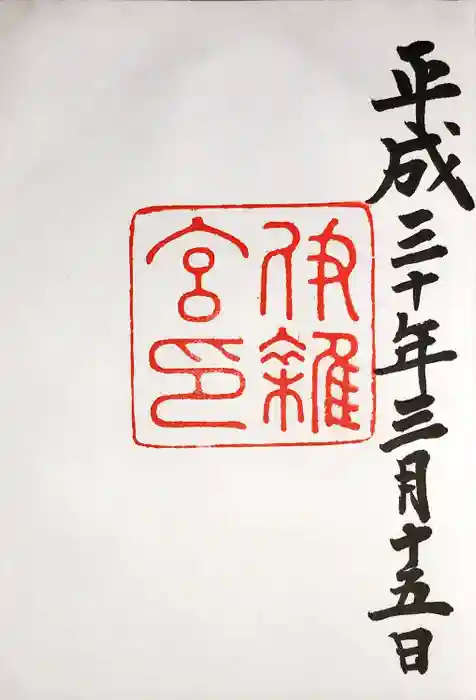 平成三十年三月十五日
伊雜
宮印